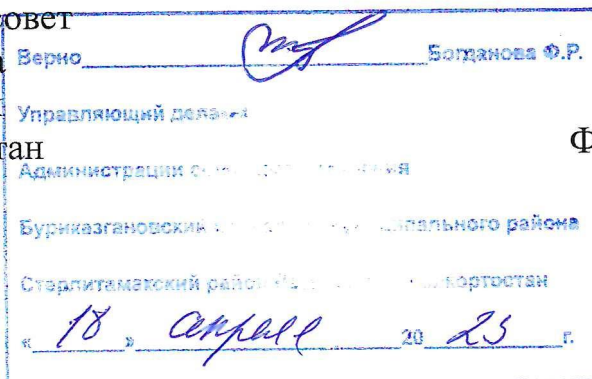 овет
Верно Богданова Ф.Р.
Управляющий
тан Ф
Администрации
Буриказгановский района
Стерлитамакский район
« 18 » апреля 20 23 г.